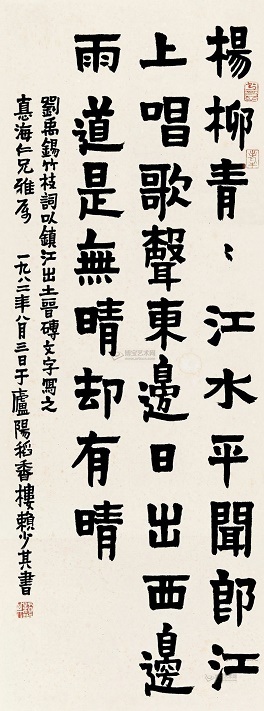 楊柳青〻江水平聞郎江
上唱歌聲東邊日出西邊
雨道是無晴却有晴
劉禹錫竹枝詞以鎮江出土晉磚文字寫之
惪海仁兄雅屬 一九八二年八月三日于廬陽稻香樓賴少其書